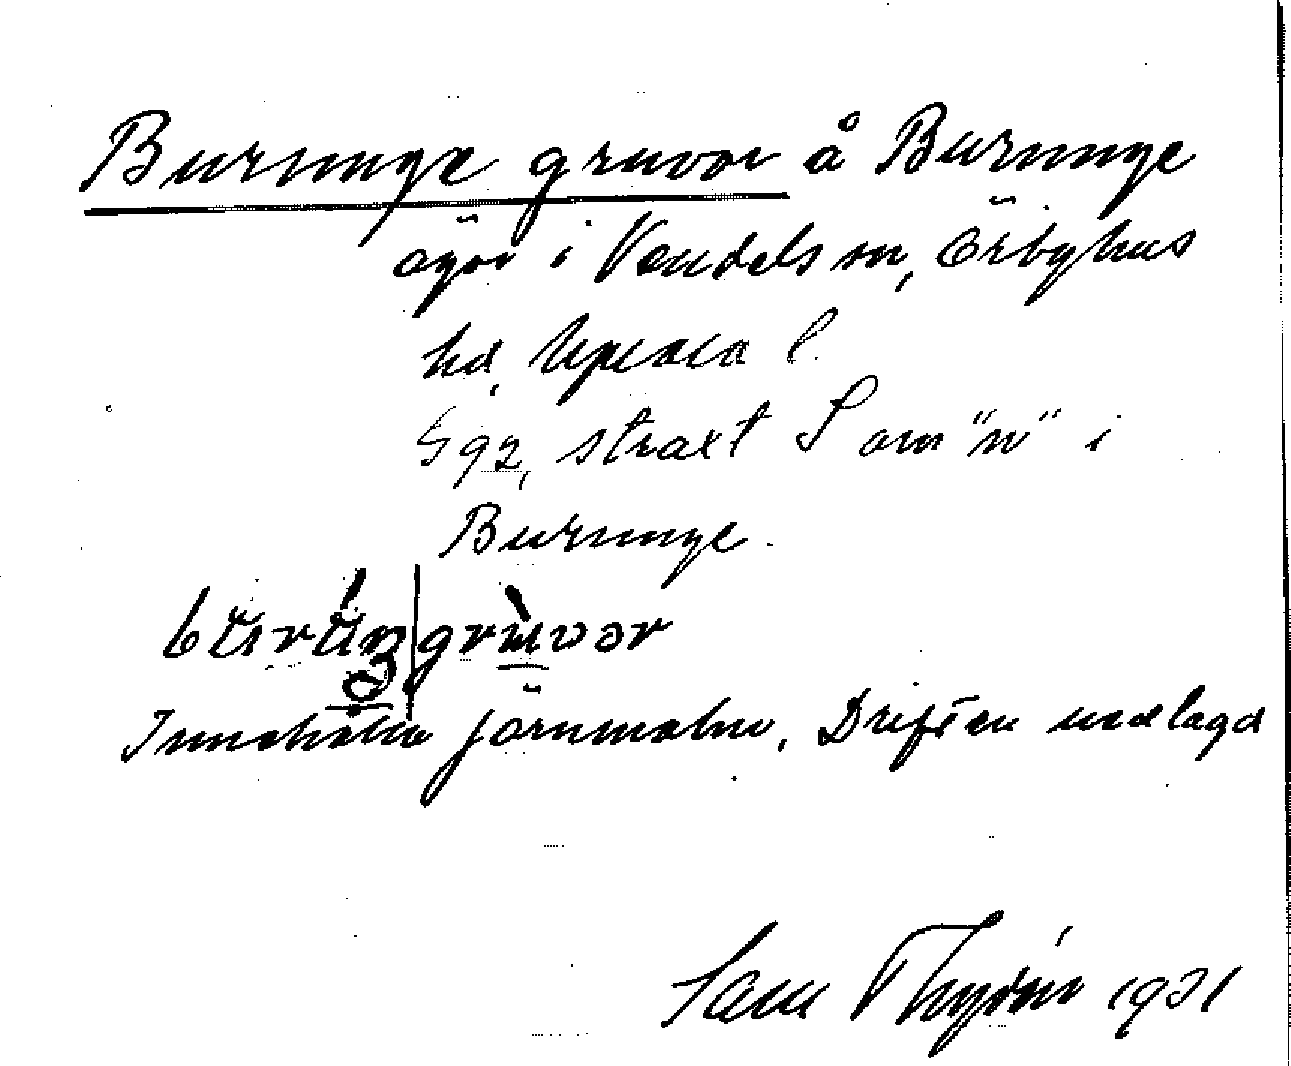 Burunge gruvor å Burunge
ägor i Vendels sn, Örbyhus
hd, Upsala l.
Sq2, straxt S om "n" i
Burunge.
gruvor
Innehålla järnmalm. Driften nedlagd
Sam Thyrén 1931